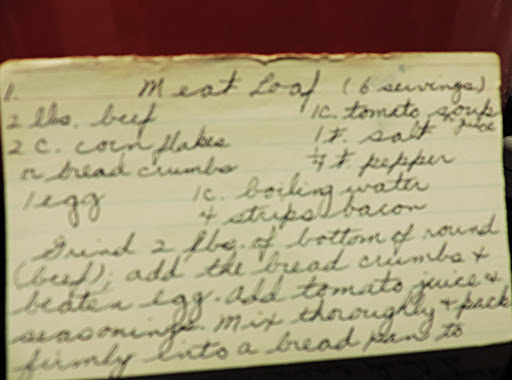 1. Meat Loaf (6 servings)
2 lbs. beef 1c. tomato soup
or juice
2 c. corn flakes 1 t. salt
or bread crumbs ¼ t. pepper
1 egg 1c. boiling water
4 strips bacon
Grind 2 lbs. of bottom of round
(beef), add the bread crumbs +
beaten egg. Add tomato juice +
seasonings. Mix thoroughly + pack
firmly into a bread pan to